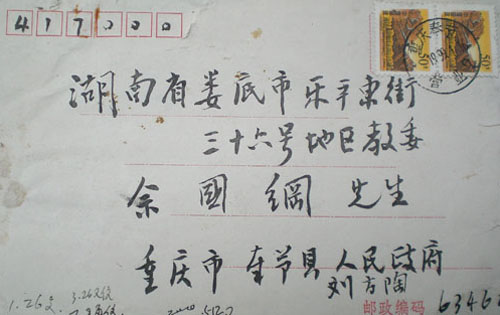 417000
湖南省娄底市乐平东街
三十六号地区教委
余國綱先生
重庆市奉节县人民政府
刘方陶
邮政编码 63462
1.26文